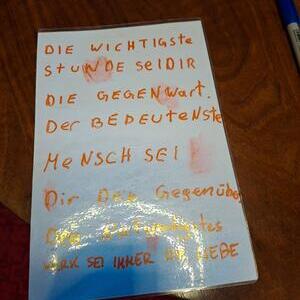 DIE WICHTIGSte
StUNDE SeIDIR
DIE GEGENWart.
Der BEDEUteNSte
MeNSCH SEI
Dir Der Gegenübe
Das notwendigstes
WERK SEI IMMER DIE LIEBE